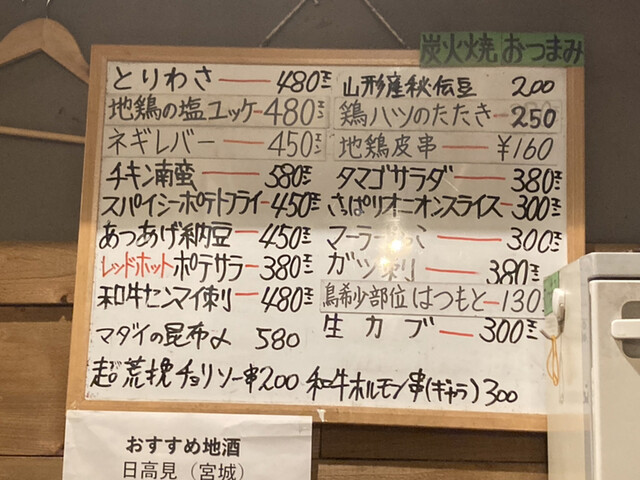 炭火焼 おつまみ
とりわさ 480円
地鶏の塩ユッケ 480円
ネギレバー 450円
チキン南蛮 580円
スパイシーポテトフライ 450円
あつあげ納豆 450円
レッドホットポテサラ 380円
和牛センマイ刺 480円
マダイの昆布〆 580
山形産秘伝豆 200
鶏ハツのたたき 250
地鶏皮串 ¥160
タマゴサラダ 380円
さっぱりオニオンスライス 300円
300円
ガツ刺 380円
鳥希少部位 はつもと 130
生カブ 300円
超荒挽チョリソー串200 和牛ホルモン串(ギャラ)300
おすすめ地酒
日高見(宮城)